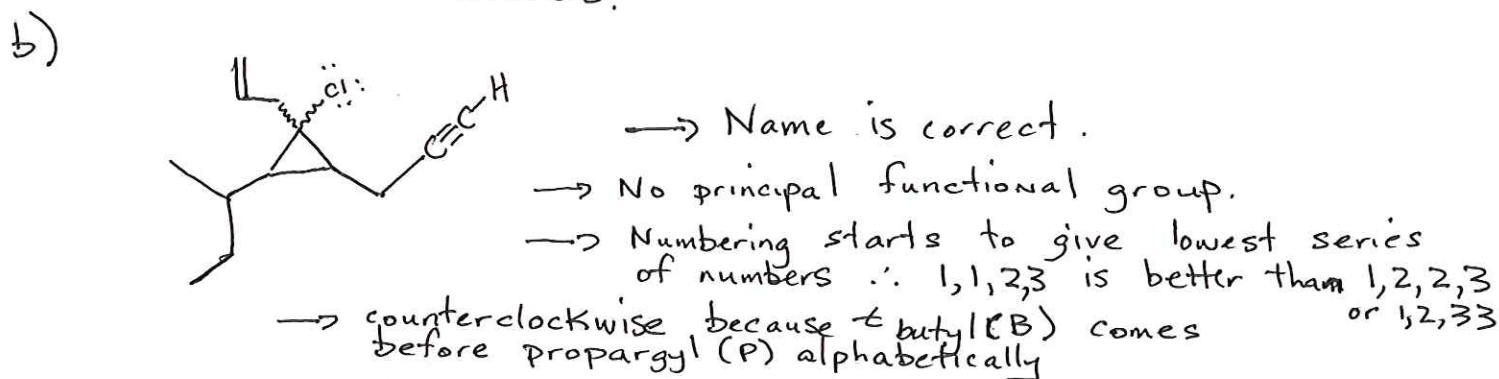 b)
:Cl:
C≡C-H
→ Name is correct.
→ No principal functional group.
→ Numbering starts to give lowest series
of numbers ∴ 1,1,2,3 is better than 1,2,2,3
or 1,2,33
→ counterclockwise because t butyl (B) comes
before propargyl (P) alphabetically